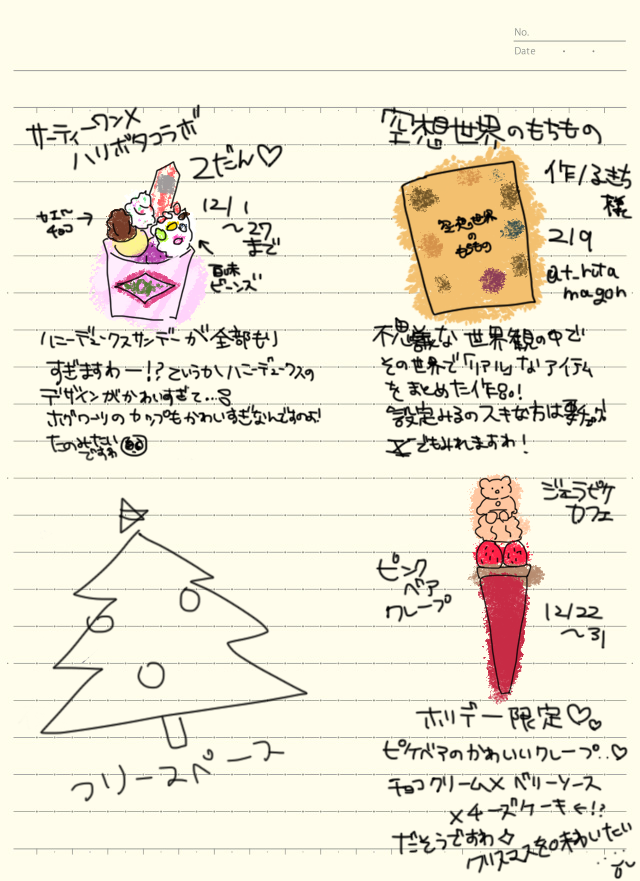 No.
Date
サーティーワン×
ハリポタコラボ
2だん♡
カエル
チョコ→
12/1
〜27
まで
百味
ビーンズ
ハニーデュークスサンデーが全部もり
すぎますわー!?というかハニーデュークスの
デザインがかわいすぎて…
ホグワーツのカップもかわいすぎなんですのよ!
たのみたい
ですわ
「空想世界のもちもの
空想世界
の
もちもの
作/るきち
様
2/9
@t_rita
magon
不思議な世界観の中で
その世界で「リアル」なアイテム
をまとめた作品!
設定みるのスキな方は要チェック
Xでもみれますわ!
フリースペース
ジェラピケ
カフェ
ピンク
ベア
クレープ
12/22
〜31
ホリデー限定♡♡
ピケベアのかわいいクレープ…♡
チョコクリーム×ベリーソース
×チーズケーキ←!?
だそうですわ☆
クリスマスを味わいたい